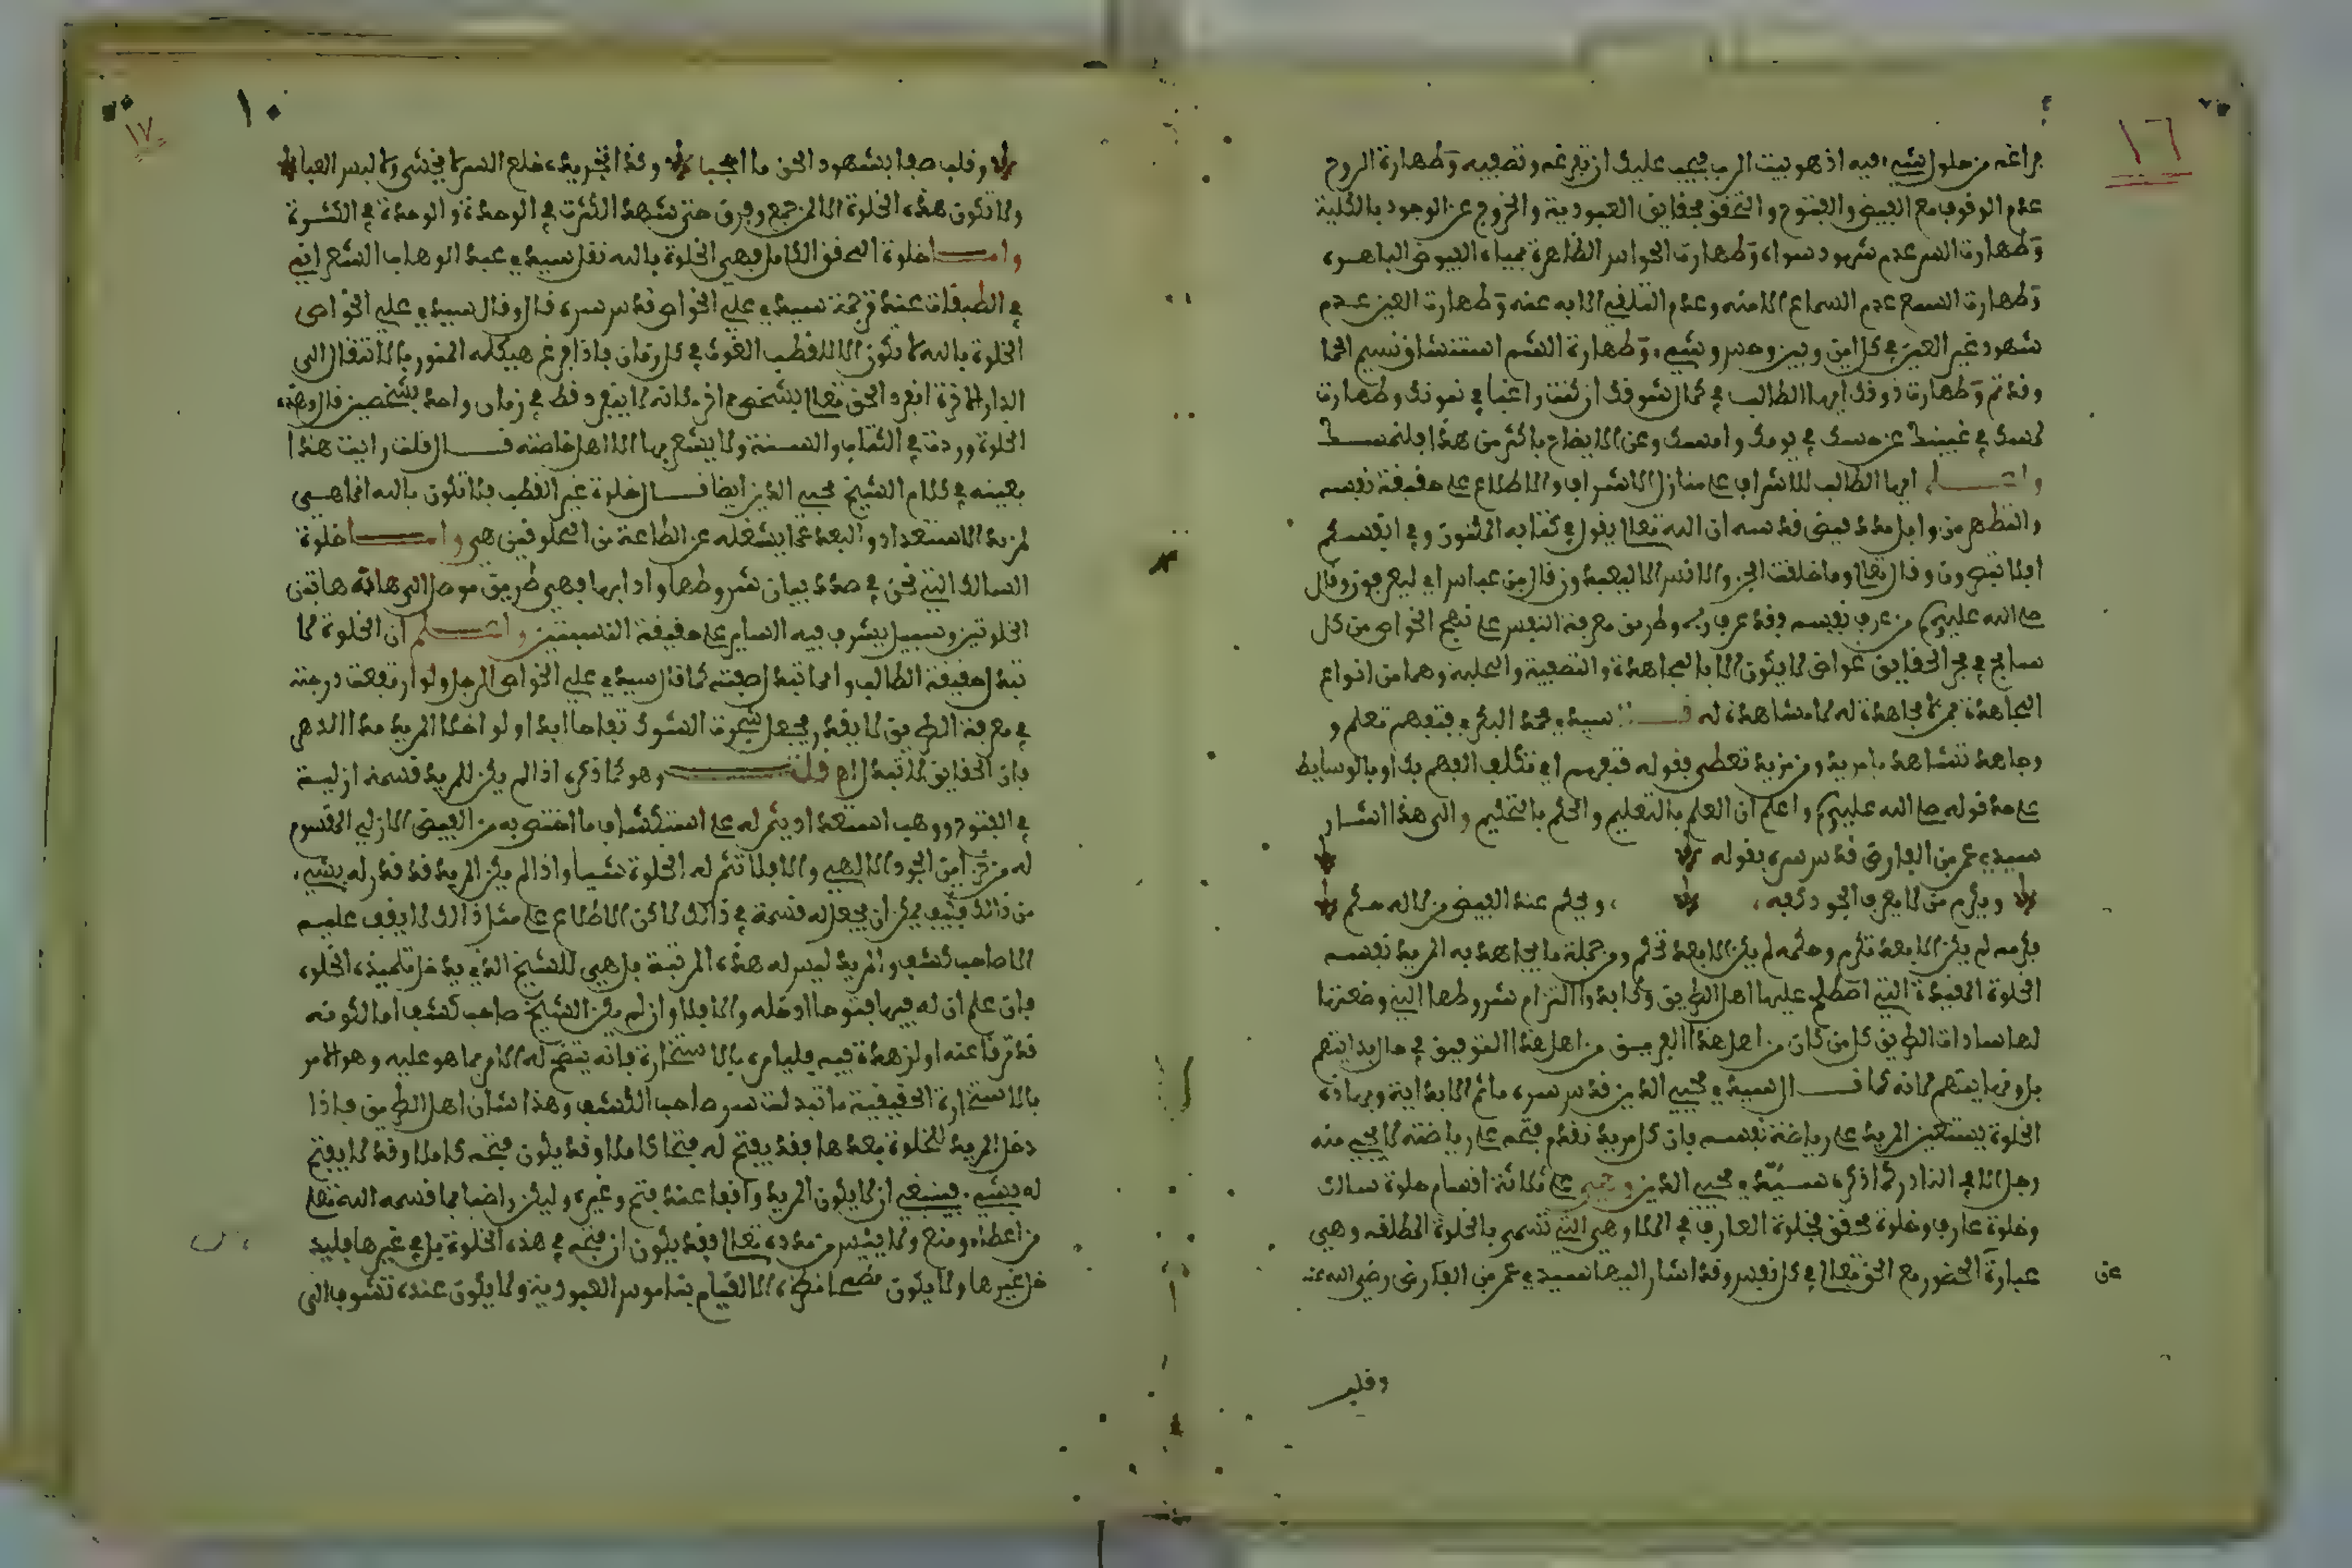 ١٦
فراغه من حلول شيء فيه اذ هو بيت الرب فيجب عليك ان تفرغه وتصفيه وطهارة الروح
عدم الوقوف مع الفيض والفتوح والتحقق بحقايق العبودية والخروج عن الوجود بالكلية
وطهارة السر عدم شهود سواه وطهارة الحواس الظاهرة بمياه الفيوض الباهره
وطهارة السمع عدم السماع الا منه وعدم التلقي الا به عنه وطهارة العين عدم
شهود غير العين في كل اين وبين وحس وشيء وطهارة الشم استنشاق نسيم الحما
وقد تم وطهارة ذوقك ايها الطالب في كمال شوقك ان كنت راغبا في نموك وطهارة
لمسك في غيبتك عن حسك في يومك وامسك وعن الايضاح باكثر من هذا فلنمسك
واعلم ايها الطالب للاشراف على منازل الاشراف والاطلاع على حقيقة نفسه
والتطهر من وابل مدد فيض قدسه ان الله تعالى يقول في كتابه المكنون وفي انفسكم
افلا تبصرون وقال تعالى وما خلقت الجن والانس الا ليعبدون قال بن عباس اي ليعرفون وقال
صلى الله عليه وسلم من عرف نفسه فقد عرف ربه وطريق معرفة النفس على نهج الخواص من كل
سابح في بحر الحقايق غواص لا يكون الا بالمجاهدة والتصفية والتحلية وهما من انواع
المجاهدة فمن لا مجاهدة له لا مشاهدة له قال سيدي محمد البكري فتفهم تعلم و
وجاهد تشاهد يا مريد ومن مزيد تعطى فقوله تفهم اي تكلف الفهم بك او بالوسايط
على حد قوله صلى الله عليه وسلم واعلم ان العلم بالتعليم والحلم بالتحليم والى هذا اشار
سيدي عمر بن الفارض قدس سره بقوله
ويكرم من لا يعرف الجود كفه ، ويحلم عند الغيض من لا له حلم
فكرمه لم يكن الا بعد تكرم وحلمه لم يكن الا بعد تحلم ومن جملة ما يجاهد به المريد نفسه
الخلوة المقيدة التي اصطلح عليها اهل الطريق ولا بد التزام شروطها التي وضعتها
لها سادات الطريق كل من كان من اهل هذا الفريق من اهل هذا التوفيق في حال بدايتهم
بل ونهايتهم لانه كما قال سيدي محيي الدين قدس سره ما ثم الا بداية وبهاذه
الخلوة يستعين المريد على رياضة نفسه فان كل مريد تقدم فتحه على رياضته لا يجي منه
رجل الا في النادر كما ذكره سيدي محيي الدين وهي على ثلاثة اقسام خلوة سالك
وخلوة عارف وخلوة محقق فخلوة العارف في الملا وهي التي تسمى بالخلوة المطلقه وهي
عبارة الحضور مع الحق تعالى في كل نفس وقد اشار اليها سيدي عمر بن الفارض رضي الله عنه
عن
وقلب
١٧
١٠
وقلب صفا بشهود الحق ما احتجبا وكذا تجريده خلع السر لا يخشى ولا لبس العبا
ولا تكون هذه الخلوة الا لمن جمع وفرق حتى شهد الكثرة في الوحدة والوحدة في الكثرة
واما خلوة المحقق الكامل فهي الخلوة بالله نقل سيدي عبد الوهاب الشعراني
في الطبقات عند ترجمة سيدي علي الخواص قدس سره قال وقال سيدي علي الخواص
الخلوة بالله لا تكون الا للقطب الغوث في كل زمان فاذا فرغ هيكله المنور بالانتقال الى
الدار الاخرة انفرد الحق تعالى بشخص اخر مكانه لا ينفرد قط في زمان واحد بشخصين قال وهذه
الخلوة وردت في الكتاب والسنة ولا يشعر بها الا اهل خاصته قال قلت رايت هذا
بعينه في كلام الشيخ محيي الدين ايضا قال خلوة غير القطب فلا تكون بالله انما هي
لمزيد الاستعداد والبعد عما يشغله عن الطاعة من المخلوقين هي واما خلوة
السالك التي نحن في صدد بيان شروطها وادابها فهي طريق موصل الى هاته هاتين
الخلوتين وسبيل يشرف فيه الساير على حقيقة القسمتين واعلم ان الخلوة لا
تبدل حقيقة الطالب وانما تبدل صفته كما قال سيدي علي الخواص الرجل ولو ارتفعت درجته
في معرفة الطريق لا يقدر يجعل شجرة الشوك تفاحا ابدا ولو اختلا المريد مدا الدهر
فان الحقايق لا تبدل اه قلت وهو كما ذكره اذا لم يكن للمريد قسمة ازلية
في الفتوح ووهب استعدادا يثمر له على استكشاف ما اختص به من الفيض الازلي المقسوم
له من خزاين الجود الالهي والا فلا تثمر له الخلوة شيئا واذا لم يكن المريد قد قدر له بشيء
من ذالك فكيف يمكن ان يجعل له قسمة في ذالك لاكن الاطلاع على مثل ذالك لا يقف عليه
الا صاحب كشف والمريد ليس له هذه المرتبة بل هي للشيخ الذي يدخل تلميذه الخلوه
فان علم ان له فيها فتوحا ادخله والا فلا وان لم يكن الشيخ صاحب كشف اما لكونه
قد ترقا عنه او لزهده فيه فليامره بالاستخارة فانه يتضح له الامر بما هو عليه وهو الامر
بالاستخارة الحقيقية ما تبدلت سر صاحب الكشف وهذا شان اهل الطريق فاذا
دخل المريد للخلوة بعدها فقد يفتح له فتحا كاملا وقد يكون فتحه كاملا وقد لا يفتح
له بشيء فينبغي ان لا يكون المريد واقفا عند فتح وغيره وليكن راضيا بما قسمه الله تعالى
من اعطاء ومنع ولا يئس من مدده تعالى فقد يكون ان فتحه في هذه الخلوة بل في غيرها فليد
خل غيرها ولا يكون مطمح نظره الا القيام بناموس العبودية ولا يكون عنده تشوف الى